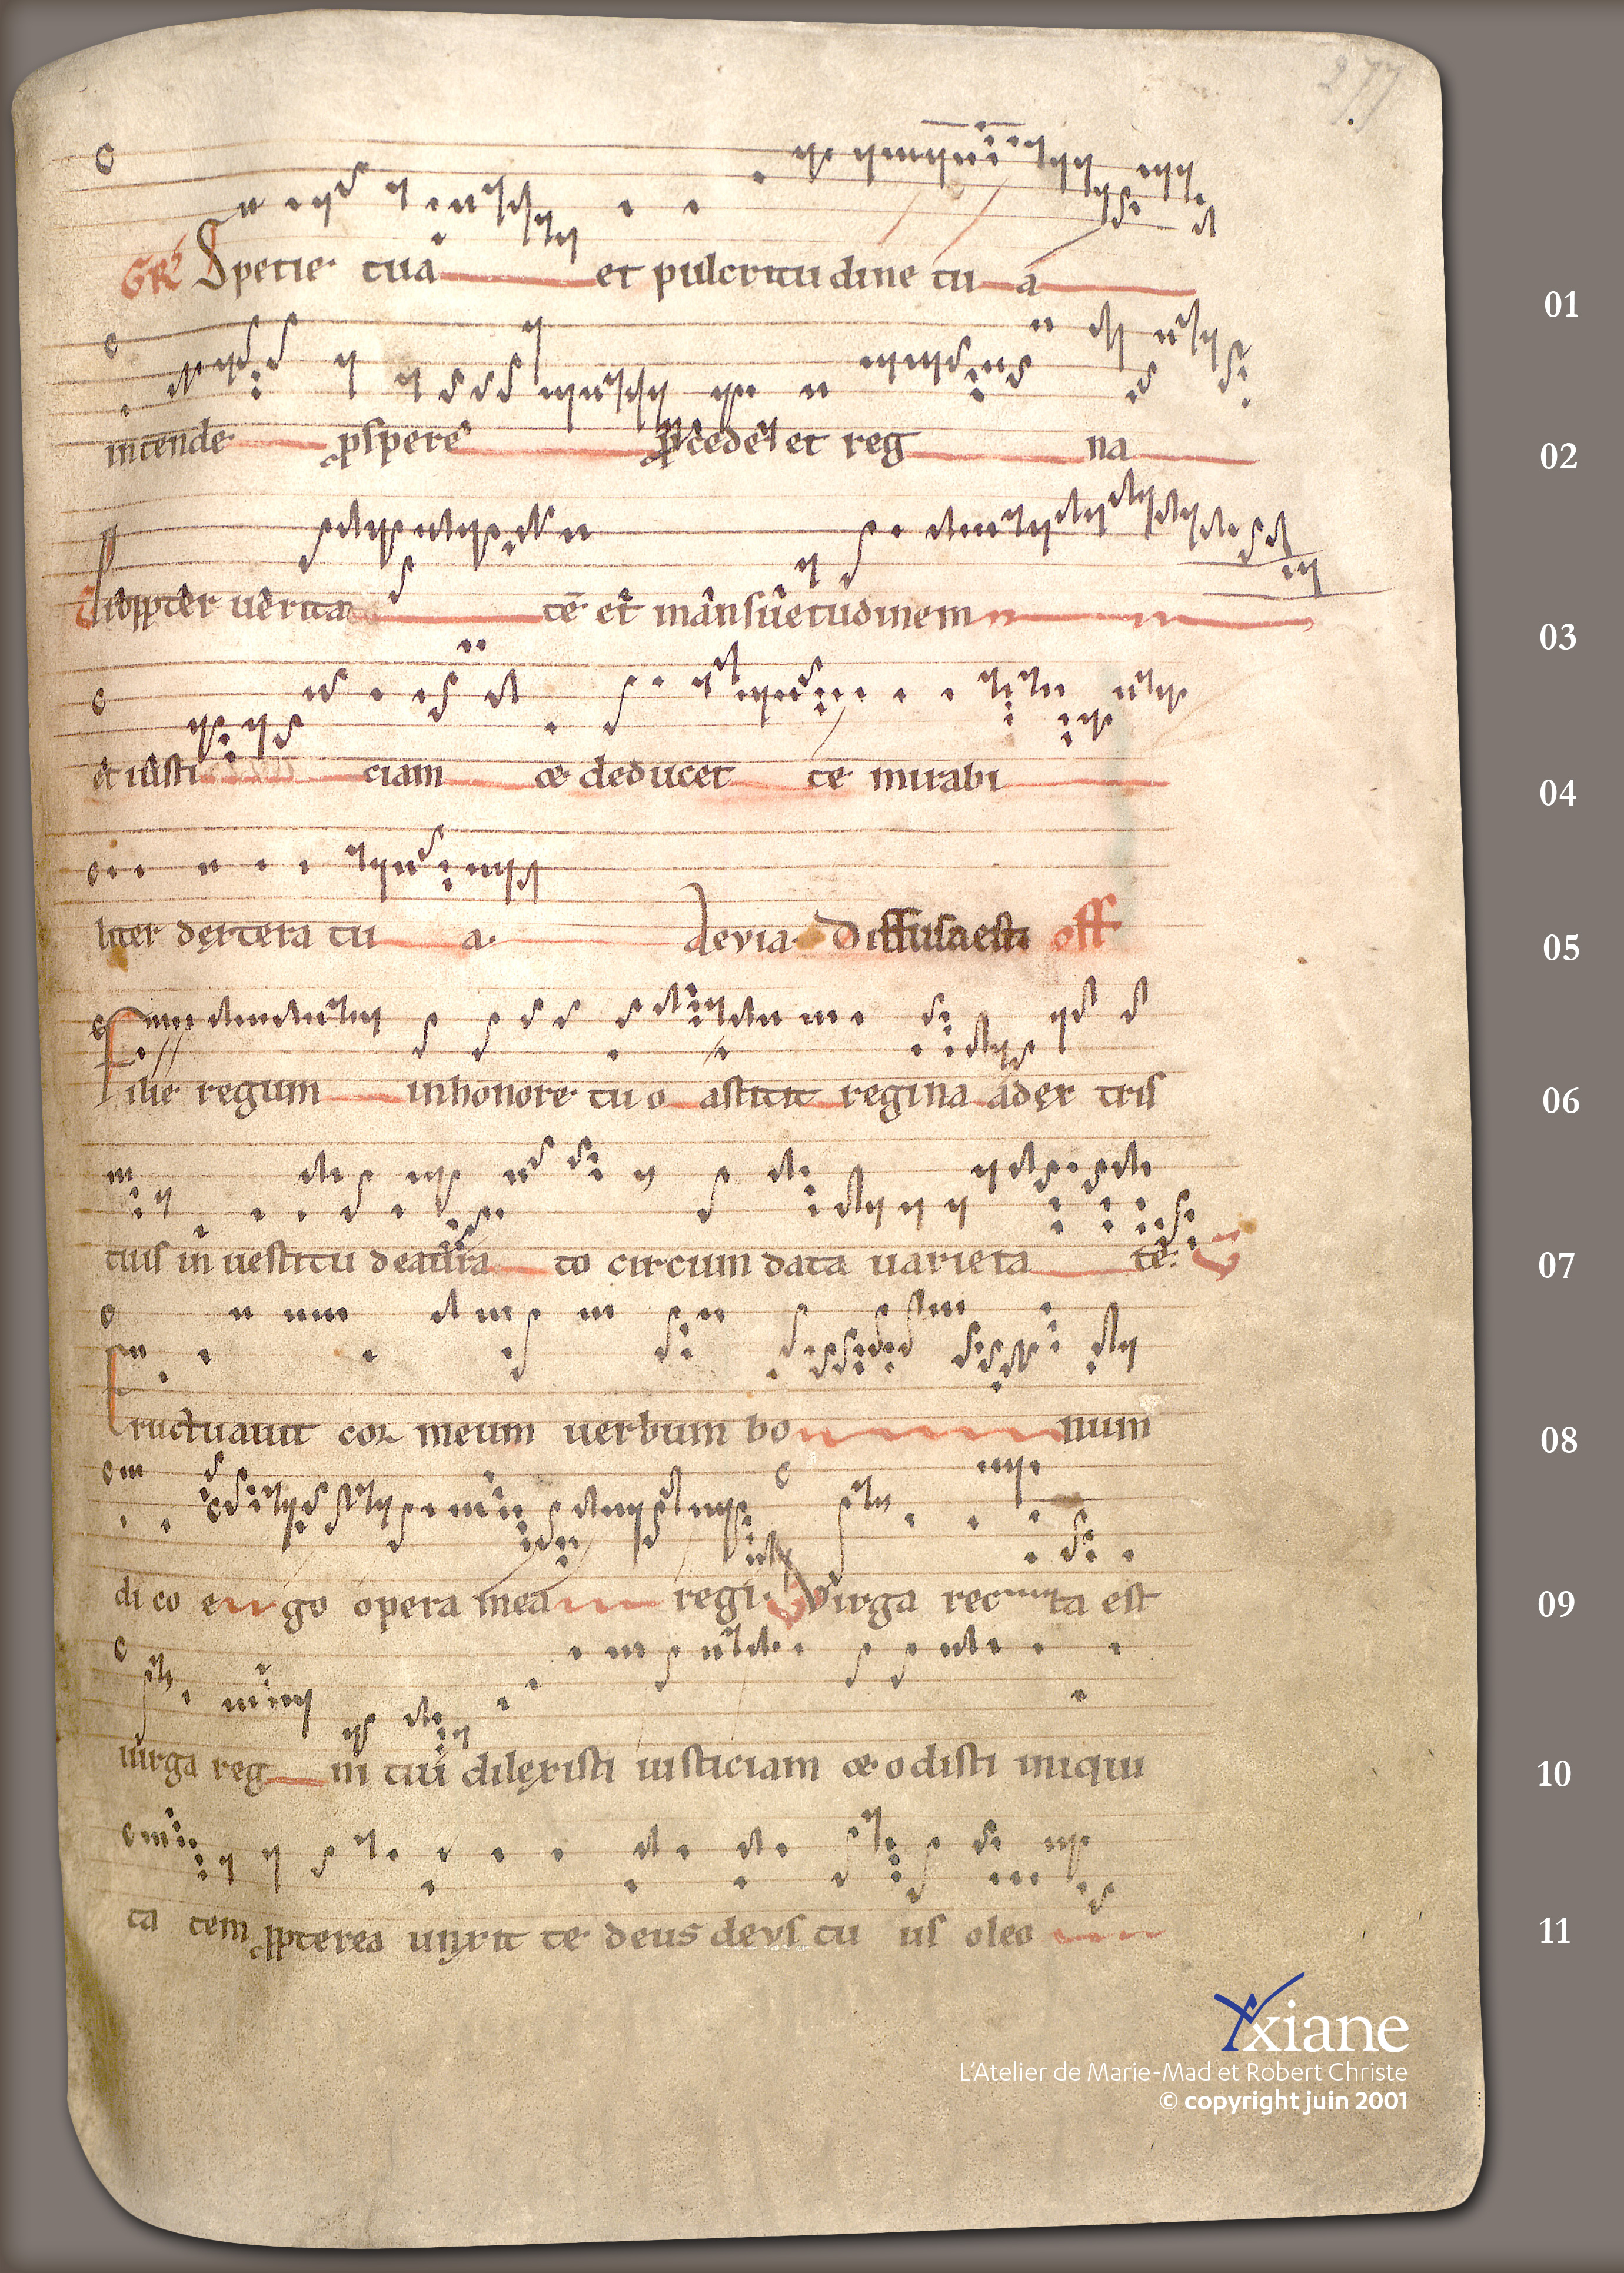 277
GR Specie tua et pulcritudine tu a 01
intende prospere procede et reg na 02
Propter verita te et mansuetudinem 03
et iusti ciam & deducet te mirabi 04
liter dextera tu a. Aevia Diffusa est off 05
Filie regum in honore tuo astitit regina adex tris 06
tuis in vestitu deaura to circumdata varieta te. V 07
Eructuavit cor meum verbum bo num 08
dico e go opera mea regi. V Virga rec ta est 09
virga reg ni tui dilexisti iusticiam & odisti iniqui 10
ta tem propterea unxit te deus devs tu us oleo 11
Yxiane
L'Atelier de Marie-Mad et Robert Christe
© copyright juin 2001